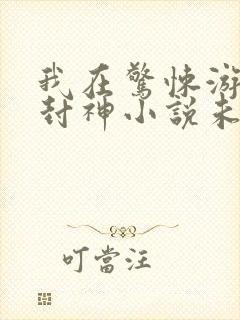 我在驚悚游
封神小說未
叮當汪